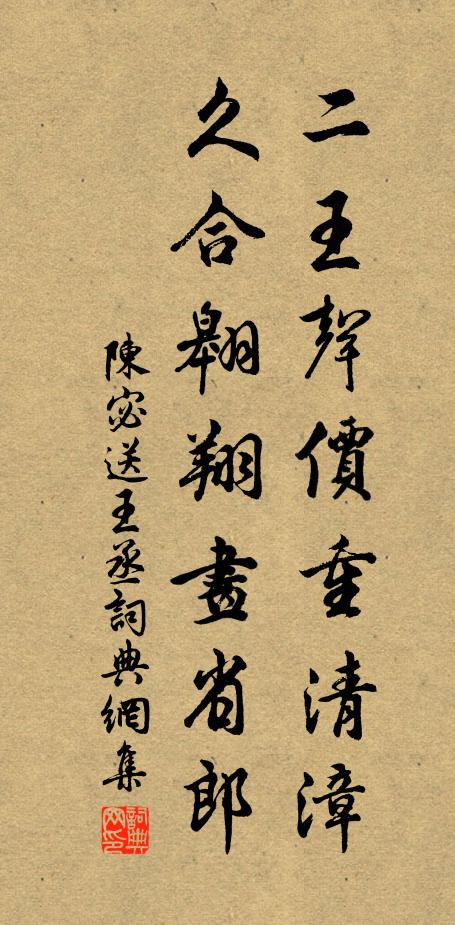 二王聲價重清漳
久合翱翔畫省郎
陳宓送王丞詞典網集
詞典網印